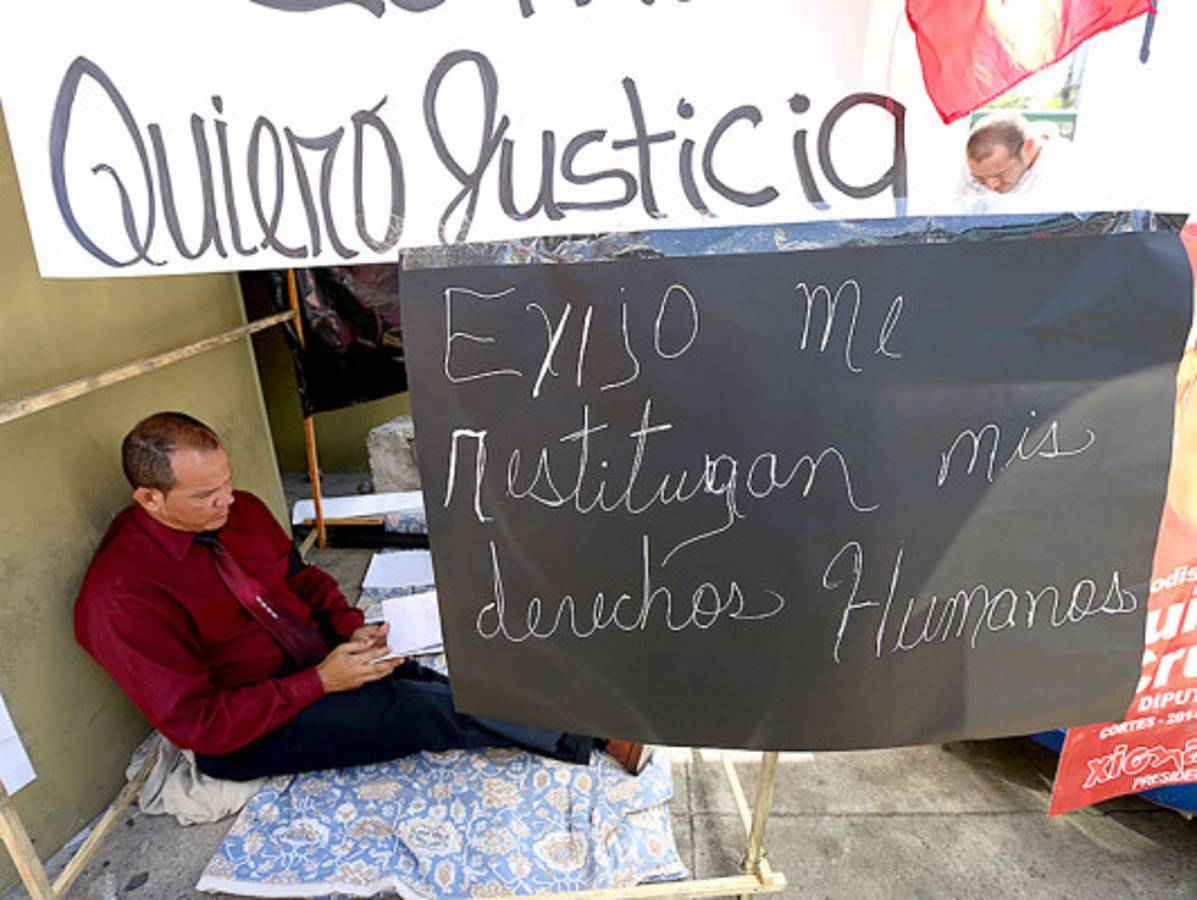 Quiero Justicia
Exijo me
restitugan mis
derechos Humanos
DIPUT
CORTES - 201
PRESIDE